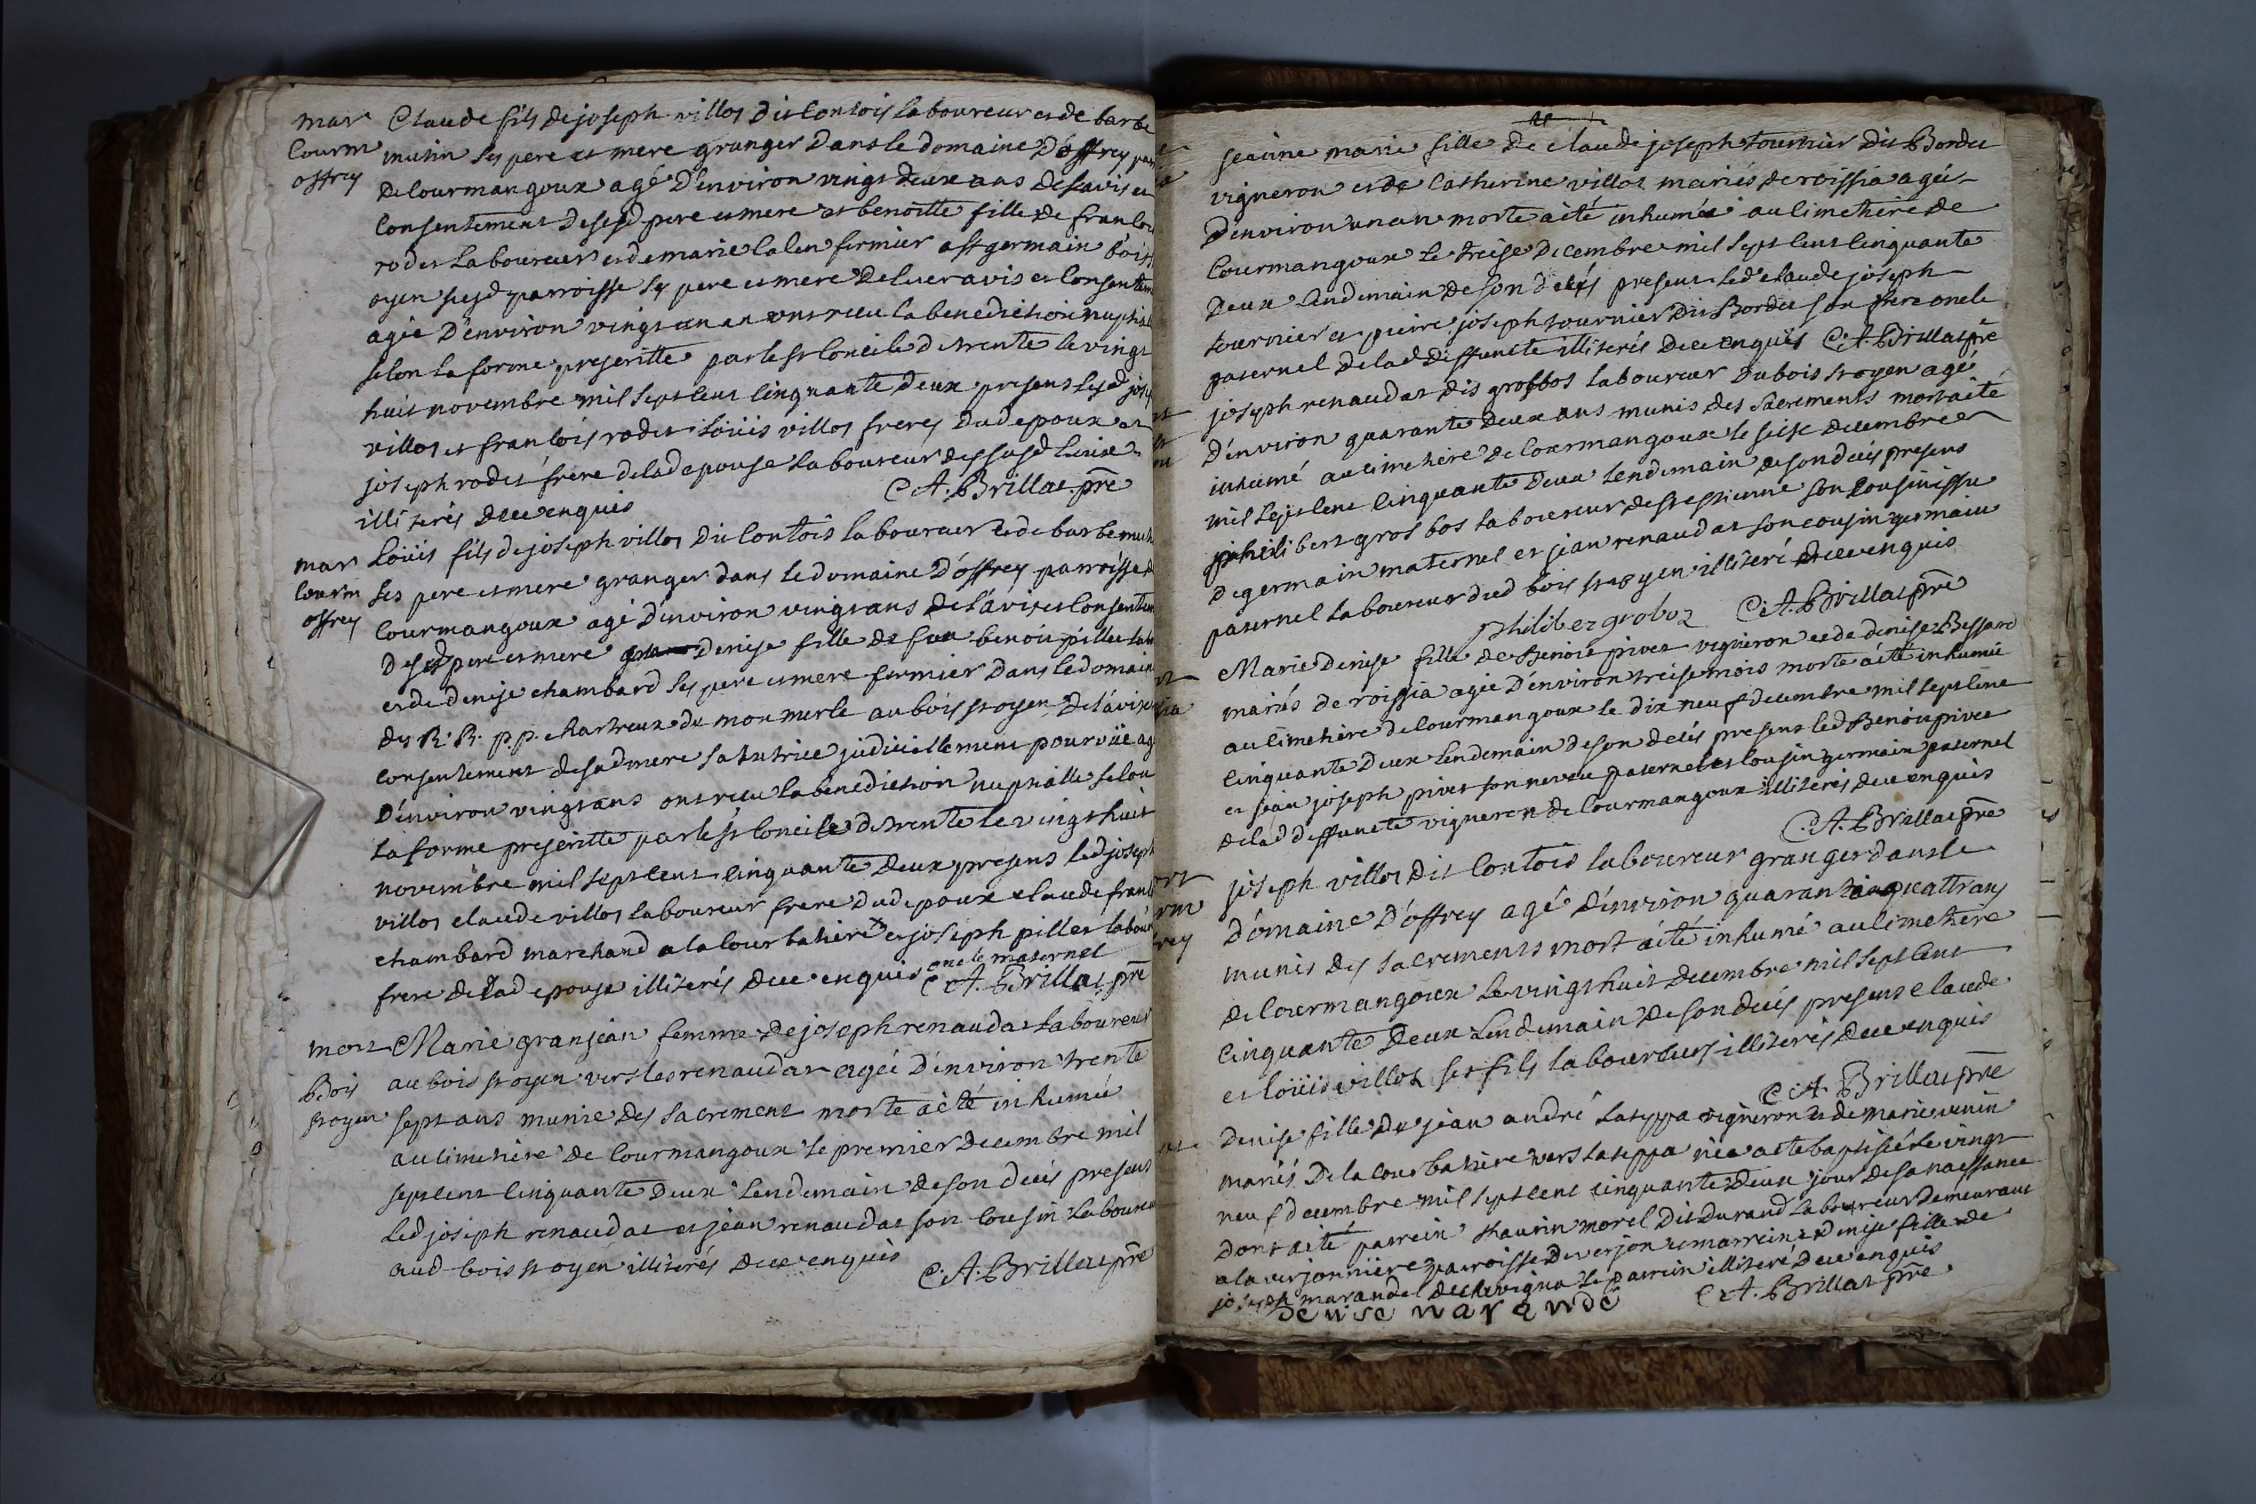 mar Claude fils de joseph villot dit Contois laboureur et de barbe
Courm mutin ses pere et mere granger dans le domaine d'offrey par
offrey de Courmangoux agé d'environ vingt deux ans de l'avis et
Consentement desesd pere et mere et benoitte fille de francois
rodet laboureur et de marie lalen fermier a st germain bois
oyen susd parroisse ses pere et mere de leur avis et Consentem
agée d'environ vingt un an ont recu la benediction nuptial
selon la forme prescritte par le st Concile de trente le vingt
huit novembre mil sept cent cinquante deux presens lesd jos
villot et francois rodet Loüis villot freres dud epoux et
joseph rodet frere de lad epouse laboureur des susd lieux
illiterés de ce enquis C.A. Brillat pre
mar Loüis fils de joseph villot dit Contois laboureur et de barbe muti
Courm ses pere et mere granger dans le domaine d'offrey parroisse de
offrey Courmangoux agé d'environ vingt ans de l'avis et Consentem
desesd pere et mere denise fille de feu benoit pillet lab
et de denise chambard ses pere et mere fermier dans le domaine
des R. R. p.p. chartreux du monmerle au bois st oyen de l'avis et
consentement de sad mere sa tutrice judiciellement pourvüe ag
d'environ vingt ans ont recu la benediction nuptialle selon
la forme prescritte par le st Concile de trente le vingt huit
novembre mil sept cent cinquante deux presens led joseph
villot claude villot laboureur frere dud epoux claude franc
chambard marchand a la Courbatiere et joseph pillet labour
oncle maternel
frere de lad epouse illiterés de ce enquis C.A. Brillat pre
mort Marie granjean femme de joseph renaudat laboureur
Bois au bois st oyen vers les renaudat agée d'environ trente
st oyen sept ans munie des sacrement morte a été inhumée
au cimetiere de Courmangoux le premier decembre mil
sept cent cinquante deux lendemain de son decés presens
led joseph renaudat et jean renaudat son cousin laboureur
aud bois st oyen illiterés de ce enquis C.A. Brillat pre
jeanne marie fille de claude joseph tournier dit Bordet
vigneron et de Catherine villot mariés de roissia agée
d'environ un an morte a été inhumée au cimetiere de
Courmangoux le treise decembre mil sept cent cinquante
deux lendemain de son decés presens led claude joseph
tournier et pierre joseph tournier dit Bordet son frere oncle
paternel de lad deffuncte illiterés de ce enquis C.A. Brillat pre
joseph renaudat dit grosbos laboureur du bois st oyen agé
d'environ quarante deux ans munis des sacrements mort a été
inhumé au cimetiere de Courmangoux le seise decembre
mil sept cent cinquante deux lendemain de son decés presens
philibert grosbos laboureur de st estienne son Cousin issu
de germain maternel et jean renaudat son cousin germain
paternel laboureur dud bois st oyen illiteré de ce enquis
philiber groboz C.A. Brillat pre
Marie denise fille de Benoit pivet vigneron et de denise Bessard
mariés de roissia agée d'environ treise mois morte a été inhumée
au cimetiere de Courmangoux le dix neuf decembre mil sept cent
cinquante deux lendemain de son decés presens led Benoit pivet
et jean joseph pivet son neveu paternel et Cousin germain paternel
de lad deffuncte vigneron de Courmangoux illiterés de ce enquis
C.A. Brillat pre
joseph villot dit Contois laboureur granger dans le
domaine d'offrey agé d'environ quarante quattr ans
munis des sacrements mort a été inhumé au cimetiere
de Courmangoux le vingt huit decembre mil sept cent
cinquante deux lendemain de son decés presens claude
et loüis villot ses fils laboureurs illiterés de ce enquis
C.A. Brillat pre
denise fille de jean andré lateppa vigneron et de marie venin
mariés de la Courbatiere vers lateppa née a ete baptisée le vingt
neuf decembre mil sept cent cinquante deux jour de sa naissance
dont a été parrein thaurin morel dit durand laboureur demeurant
a la verjonniere parroisse de verjon et marreine denise fille de
joseph marandet de chevigna le parrein illiteré de ce enquis
denise marande C.A. Brillat pre